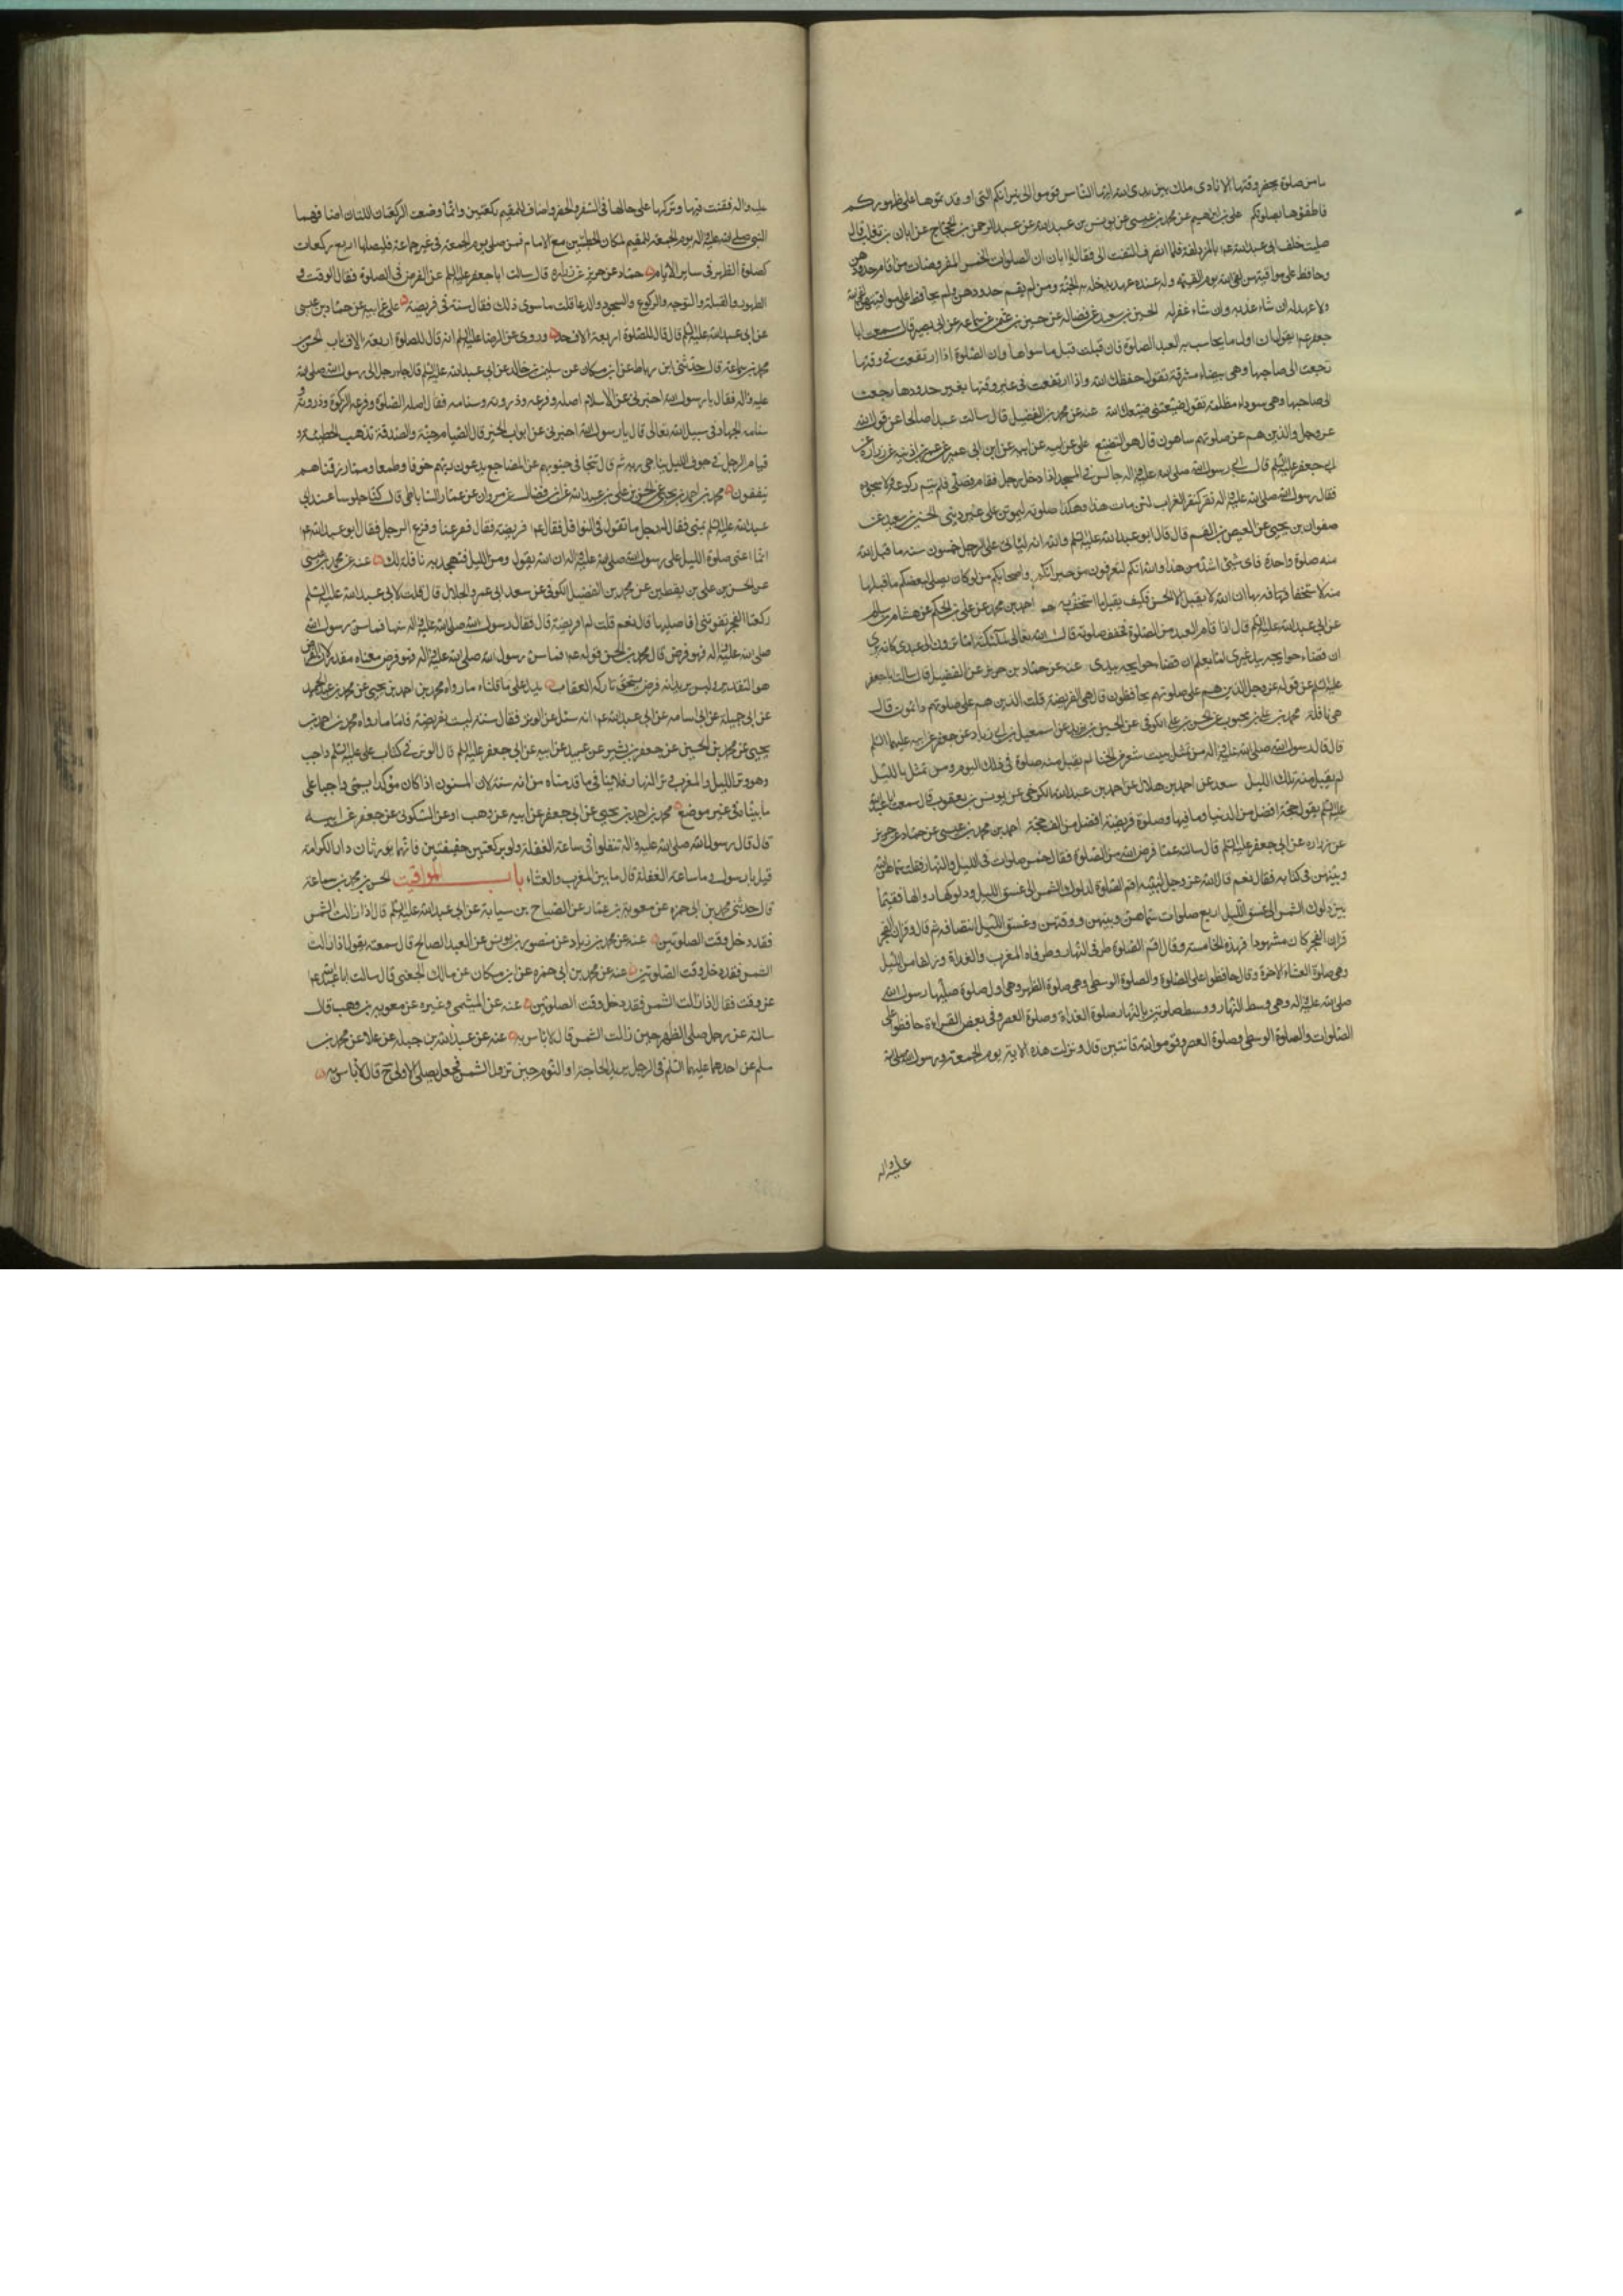 ما من صلوة يحضر وقتها الا نادى ملك بين يدى الله ايها الناس قوموا الى نيرانكم التى اوقدتموها على ظهوركم
فاطفؤها بصلوتكم على بن ابراهيم عن محمد بن عيسى عن يونس بن عبد الله عن عبد الرحمن بن الحجاج عن ابان بن تغلب قال
صليت خلف ابى عبد الله عم بالمزدلفة فلما انصرف التفت الى فقال يا ابان ان الصلوات الخمس المفروضات من اقام حدودهن
وحافظ على مواقيتهن لقى الله يوم القيمة وله عنده عهد يدخله به الجنة ومن لم يقم حدودهن ولم يحافظ على مواقيتهن لقى الله
ولا عهد له ان شاء عذبه وان شاء غفر له الحسين بن سعيد عن فضاله عن حسين بن عثمن عن سماعه عن ابى بصير قال سمعت ابا
جعفر عم يقول ان اول ما يحاسب به العبد الصلوة فان قبلت قبل ما سواها وان الصلوة اذا ارتفعت فى وقتها
رجعت الى صاحبها وهى بيضاء مشرقة تقول حفظتنى حفظك الله واذا ارتفعت فى غير وقتها بغير حدودها رجعت
الى صاحبها وهى سوداء مظلمة تقول ضيعتنى ضيعك الله عنه عن محمد بن الفضيل قال سالت عبدا صالحا عن قول الله
عز وجل والذين هم عن صلوتهم ساهون قال هو التضييع على عن ابيه عن ابن ابى عمير عن عمر بن اذينه عن زراره عن
ابى جعفر عليه السلم قال بينا رسول الله صلى الله عليه واله جالس فى المسجد اذا دخل رجل فقام فصلى فلم يتم ركوعه ولا سجوده
فقال رسول الله صلى الله عليه واله نقر كنقر الغراب لئن مات هذا وهكذا صلوته ليموتن على غير دينى الحسين بن سعيد عن
صفوان بن يحيى عن العيص بن القسم قال قال ابو عبد الله عليه السلم والله انه ليأتى على الرجل خمسون سنه ما قبل الله
منه صلوة واحدة فاى شئ اشد من هذا والله انكم لتعرفون من جيرانكم واصحابكم من لو كان يصلى لبعضكم ما قبلها
منه لاستخفافه بها ان الله لا يقبل الا الحسن فكيف يقبل ما استخف به احمد بن محمد عن على بن الحكم عن هشام بن سالم
عن ابى عبد الله عليه السلم قال اذا قام العبد من الصلوة فخفف صلوته قال الله تعالى لملئكته اما ترون الى عبدى كانه يرى
ان قضاء حوايجه بيد غيرى اما يعلم ان قضاء حوايجه بيدى عنه عن حماد بن حريز عن الفضيل قال سالت ابا جعفر
عليه السلم عن قوله عز وجل الذين هم على صلوتهم يحافظون قال هى الفريضة قلت الذين هم على صلوتهم دائمون قال
هى نافلة محمد بن على بن محبوب عن الحسن بن على الكوفى عن الحسين بن يزيد عن اسمعيل بن ابى زياد عن جعفر عن ابيه عليهما السلم
قال قال رسول الله صلى الله عليه واله من تمثل ببيت شعر من الخنا لم يقبل منه صلوة فى ذلك اليوم ومن تمثل بالليل
لم يقبل منه تلك الليل سعد عن احمد بن هلال عن احمد بن عبد الله الكرخى عن يونس بن يعقوب قال سمعت ابا عبد الله
عليه السلم يقول حجة افضل من الدنيا وما فيها وصلوة فريضة افضل من الف حجة احمد بن محمد بن عيسى عن حماد عن حريز
عن زراره عن ابى جعفر عليه السلم قال سالته عما فرض الله من الصلوة فقال خمس صلوات فى الليل والنهار فقلت سماهن الله
وبينهن فى كتابه فقال نعم قال الله عز وجل لنبيه اقم الصلوة لدلوك الشمس الى غسق الليل ودلوكها زوالها ففيما
بين دلوك الشمس الى غسق الليل اربع صلوات سماهن وبينهن ووقتهن وغسق الليل انتصافه ثم قال وقران الفجر
قران الفجر كان مشهودا فهذه الخامسة وقال اقم الصلوة طرفى النهار وطرفاه المغرب والغداة وزلفا من الليل
وهى صلوة العشاء الاخرة وقال حافظوا على الصلوة والصلوة الوسطى وهى صلوة الظهر وهى اول صلوة صليها رسول الله
صلى الله عليه واله وهى وسط النهار ووسط صلوتين بالنهار صلوة الغداة وصلوة العصر وفى بعض القراءة حافظوا على
الصلوات والصلوة الوسطى وصلوة العصر وقوموا لله قانتين قال ونزلت هذه الاية يوم الجمعة ورسول الله صلى الله
عليه واله
عليه واله فقنت فيها وتركها على حالها فى السفر والحضر واضاف للمقيم ركعتين وانما وضعت الركعتان اللتان اضافهما
النبى صلى الله عليه واله يوم الجمعة للمقيم لمكان الخطبتين مع الامام فمن صلى يوم الجمعة فى غير جماعة فليصلها اربع ركعات
كصلوة الظهر فى ساير الايام حماد عن حريز عن زراره قال سالت ابا جعفر عليه السلم عن الفرض فى الصلوة فقال الوقت و
الطهور والقبلة والتوجه والركوع والسجود والدعا قلت ما سوى ذلك فقال سنة فى فريضة على عن ابيه عن حماد بن عيسى
عن ابى عبد الله عليه السلم قال قال للصلوة اربعة الاف حد وروى عن الرضا عليه السلم انه قال للصلوة اربعة الاف باب الحسن بن
محمد بن سماعة قال حدثنى ابن رباط عن ابن مسكان عن سليمن بن خالد عن ابى عبد الله عليه السلم قال جاء رجل الى رسول الله صلى الله
عليه واله فقال يا رسول الله اخبرنى عن الاسلام اصله وفرعه وذروته وسنامه فقال اصله الصلوة وفرعه الزكوة وذروته و
سنامه الجهاد فى سبيل الله تعالى قال يا رسول الله اخبرنى عن ابواب الخير قال الصيام جنة والصدقة تذهب الخطيئة و
قيام الرجل فى جوف الليل يناجى ربه ثم قال تتجافى جنوبهم عن المضاجع يدعون ربهم خوفا وطمعا ومما رزقناهم
ينفقون محمد بن احمد بن يحيى عن الحسن بن على بن عبد الله عن ابن فضال عن مروان عن عمار الساباطى قال كنا جلوسا عند ابى
عبد الله عليه السلم بمنى فقال له رجل ما تقول فى النوافل فقال عم فريضة فقال ففزعنا وفزع الرجل فقال ابو عبد الله عم
انما اعنى صلوة الليل على رسول الله صلى الله عليه واله ان الله يقول ومن الليل فتهجد به نافلة لك عنه عن محمد بن عيسى
عن الحسن بن على بن يقطين عن محمد بن الفضيل الكوفى عن سعد ابى عمرو الجلاب قال قلت لابى عبد الله عليه السلم
ركعتا الفجر تفوتنى افاصليها قال نعم قلت لم افريضة قال فقال رسول الله صلى الله عليه واله سنها فما سن رسول الله
صلى الله عليه واله فهو فرض قال محمد بن الحسن قوله عم فما سن رسول الله صلى الله عليه واله فهو فرض معناه مقدر لان الفرض
هو التقدير وليس يريد انه فرض يستحق تاركه العقاب يدل على ما قلناه ما رواه محمد بن احمد بن يحيى عن محمد بن عبد الحميد
عن ابى جميلة عن ابى اسامه عن ابى عبد الله عم انه سئل عن الوتر فقال سنة ليست بفريضة فاما ما رواه محمد بن احمد بن
يحيى عن محمد بن الحسين عن جعفر بن بشير عن عبيد عن ابيه عن ابى جعفر عليه السلم قال الوتر فى كتاب على عليه السلم واجب
وهو وتر الليل والمغرب وتر النهار فلا ينافى ما قدمناه من انه سنة لان المسنون اذا كان مؤكدا يسمى واجبا على
ما بيناه فى غير موضع محمد بن احمد بن يحيى عن ابى جعفر عن ابيه عن وهب او عن السكونى عن جعفر عن ابيه
قال قال رسول الله صلى الله عليه واله تنفلوا فى ساعة الغفلة ولو بركعتين خفيفتين فانهما يورثان دار الكرامة
قيل يا رسول وما ساعة الغفلة قال ما بين المغرب والعشاء باب المواقيت الحسن بن محمد بن سماعة
قال حدثنى محمد بن ابى حمزه عن معوية بن عمار عن الصباح بن سيابة عن ابى عبد الله عليه السلم قال اذا زالت الشمس
فقد دخل وقت الصلوتين عنه عن محمد بن زياد عن منصور بن يونس عن العبد الصالح قال سمعته يقول اذا زالت
الشمس فقد دخل وقت الصلوتين عنه عن محمد بن ابى حمزه عن ابن مسكان عن مالك الجهنى قال سالت ابا عبد الله عم
عن وقت فقال اذا زالت الشمس فقد دخل وقت الصلوتين عنه عن الميثمى وغيره عن معوية بن وهب قال
سالته عن رجل صلى الظهر حين زالت الشمس قال لا باس به عنه عن عبد الله بن جبله عن علا عن محمد بن
مسلم عن احدهما عليهما السلم فى الرجل يريد الحاجة او النوم حين تزول الشمس فجعل يصلى الاولى ح قال لا باس به